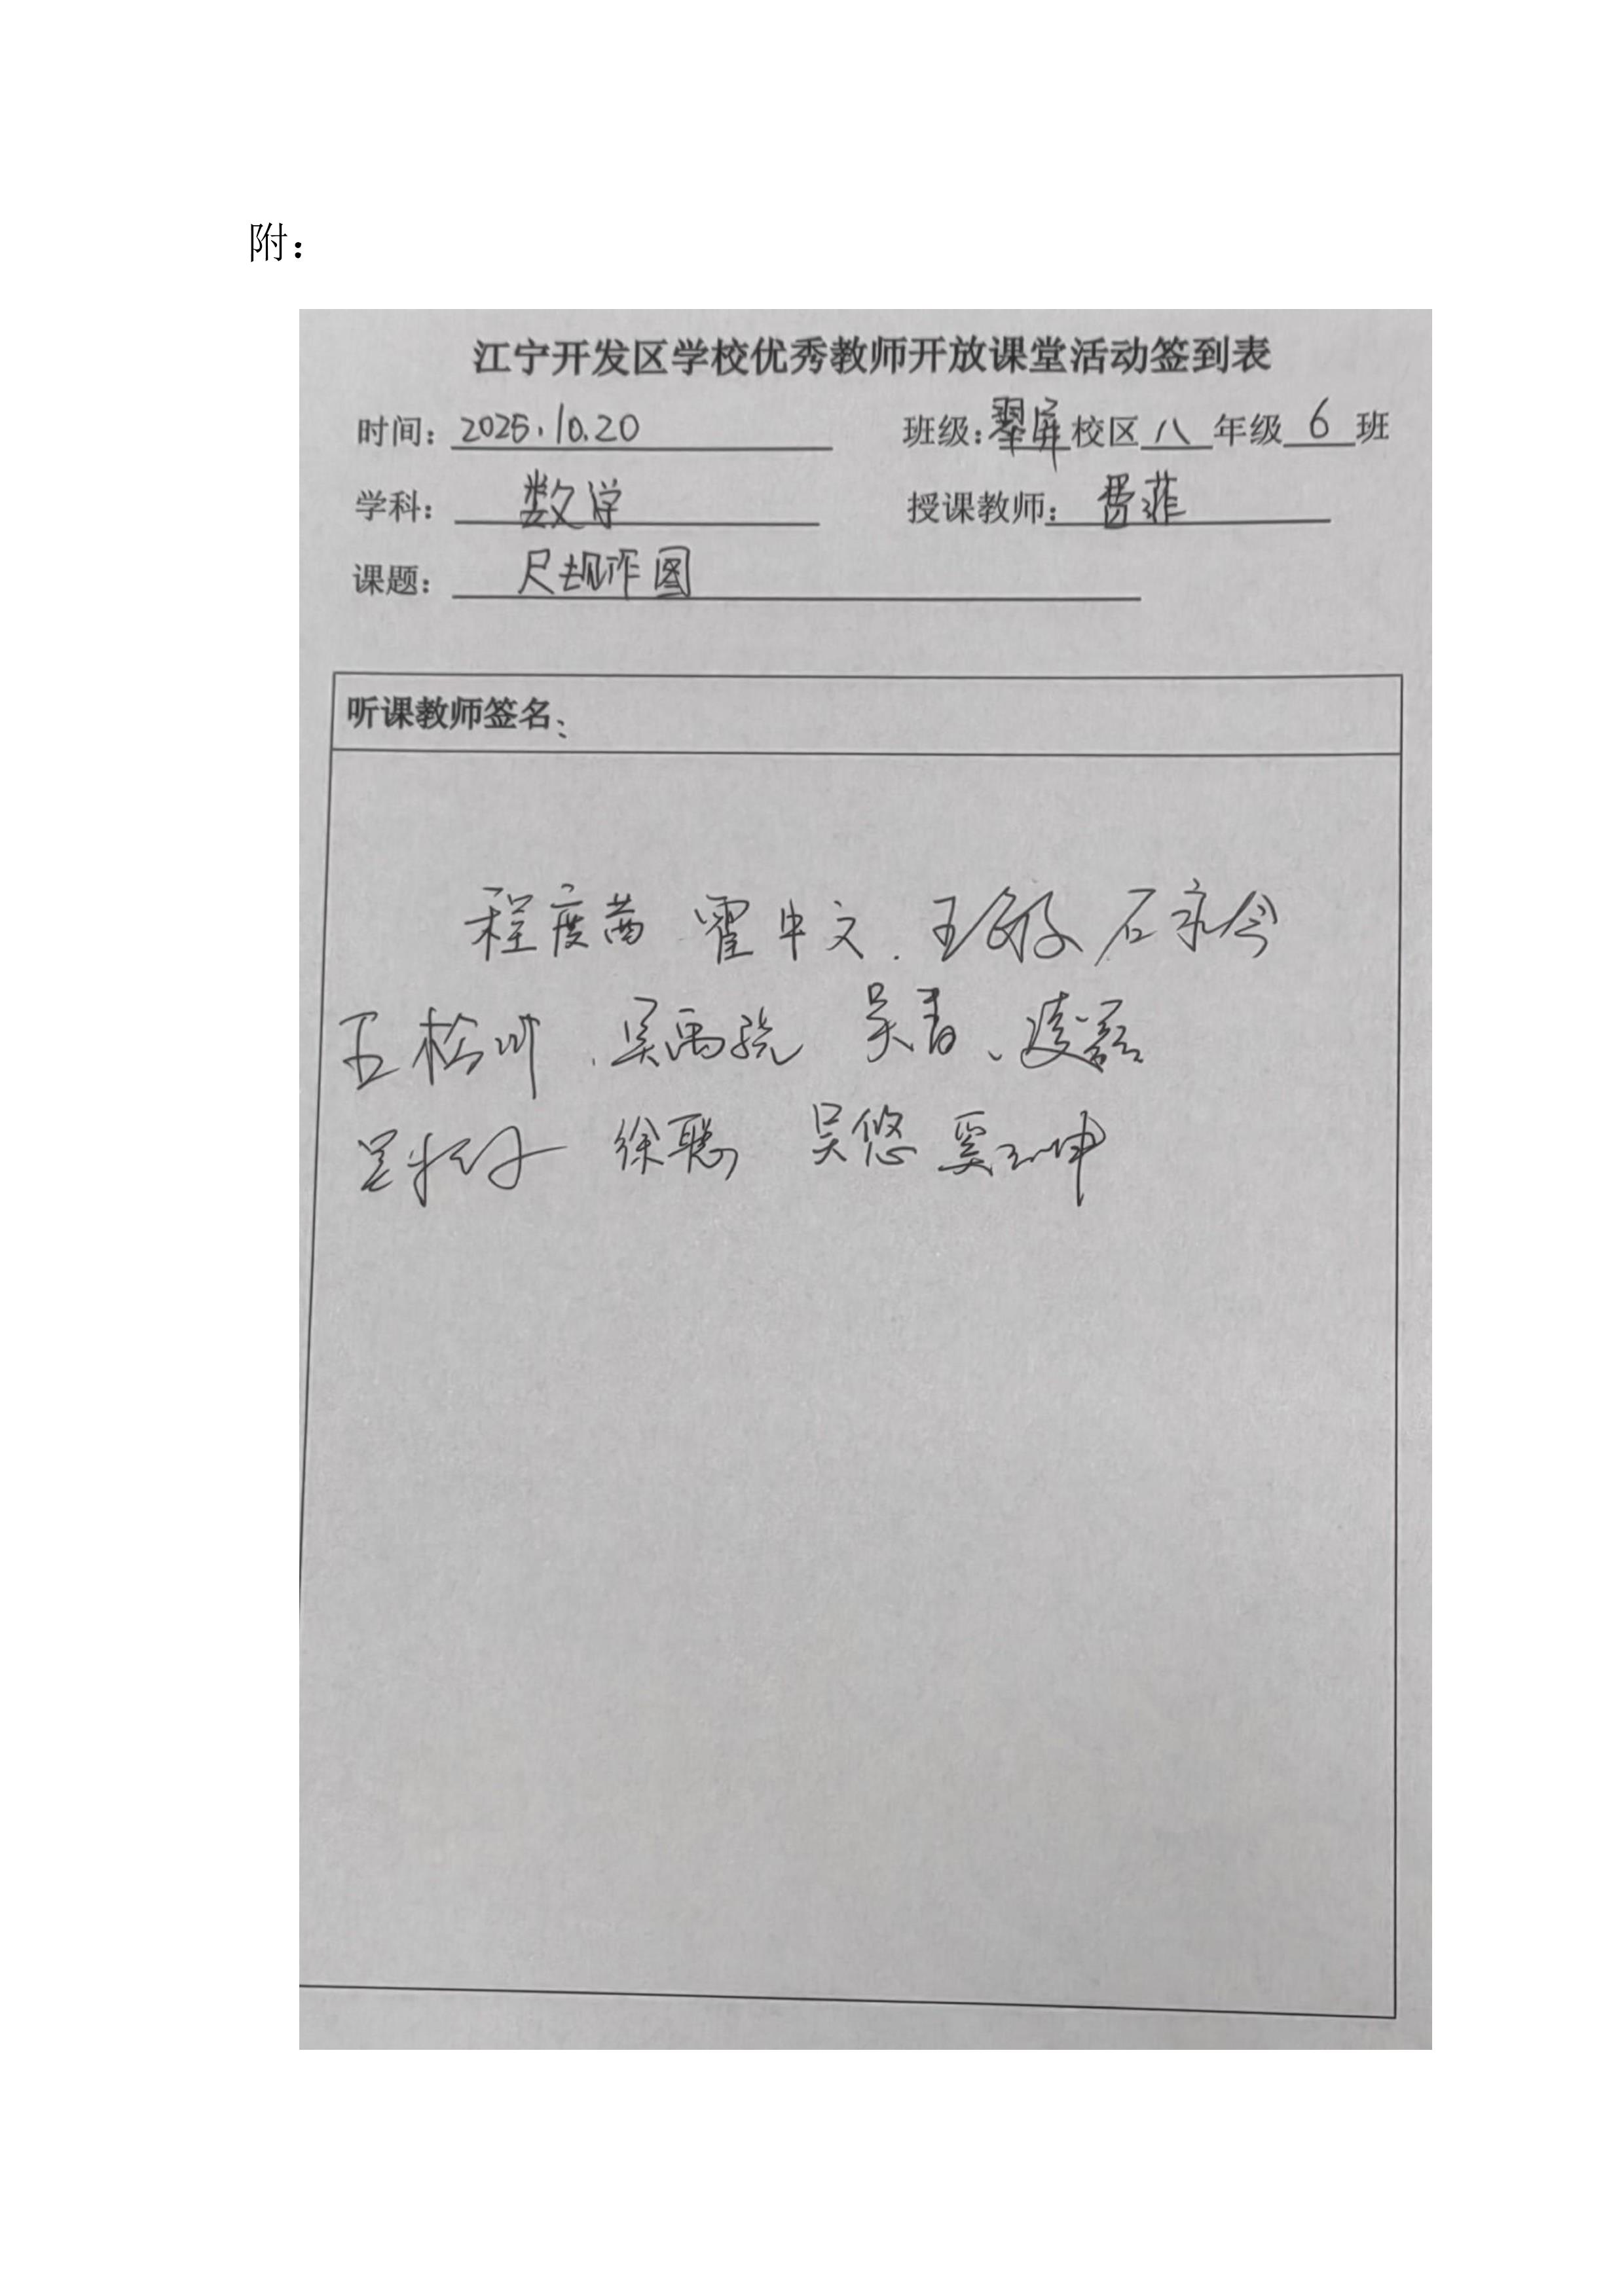 附：
江宁开发区学校优秀教师开放课堂活动签到表
时间：2025.10.20 班级：翠屏校区八年级6班
学科：数学 授课教师：费菲
课题：尺规作图
听课教师签名：
程度茜 霍中文. 王敏 石永令
王松川、吴禹锐 吴青、凌磊
徐聪 吴悠 奚玉坤